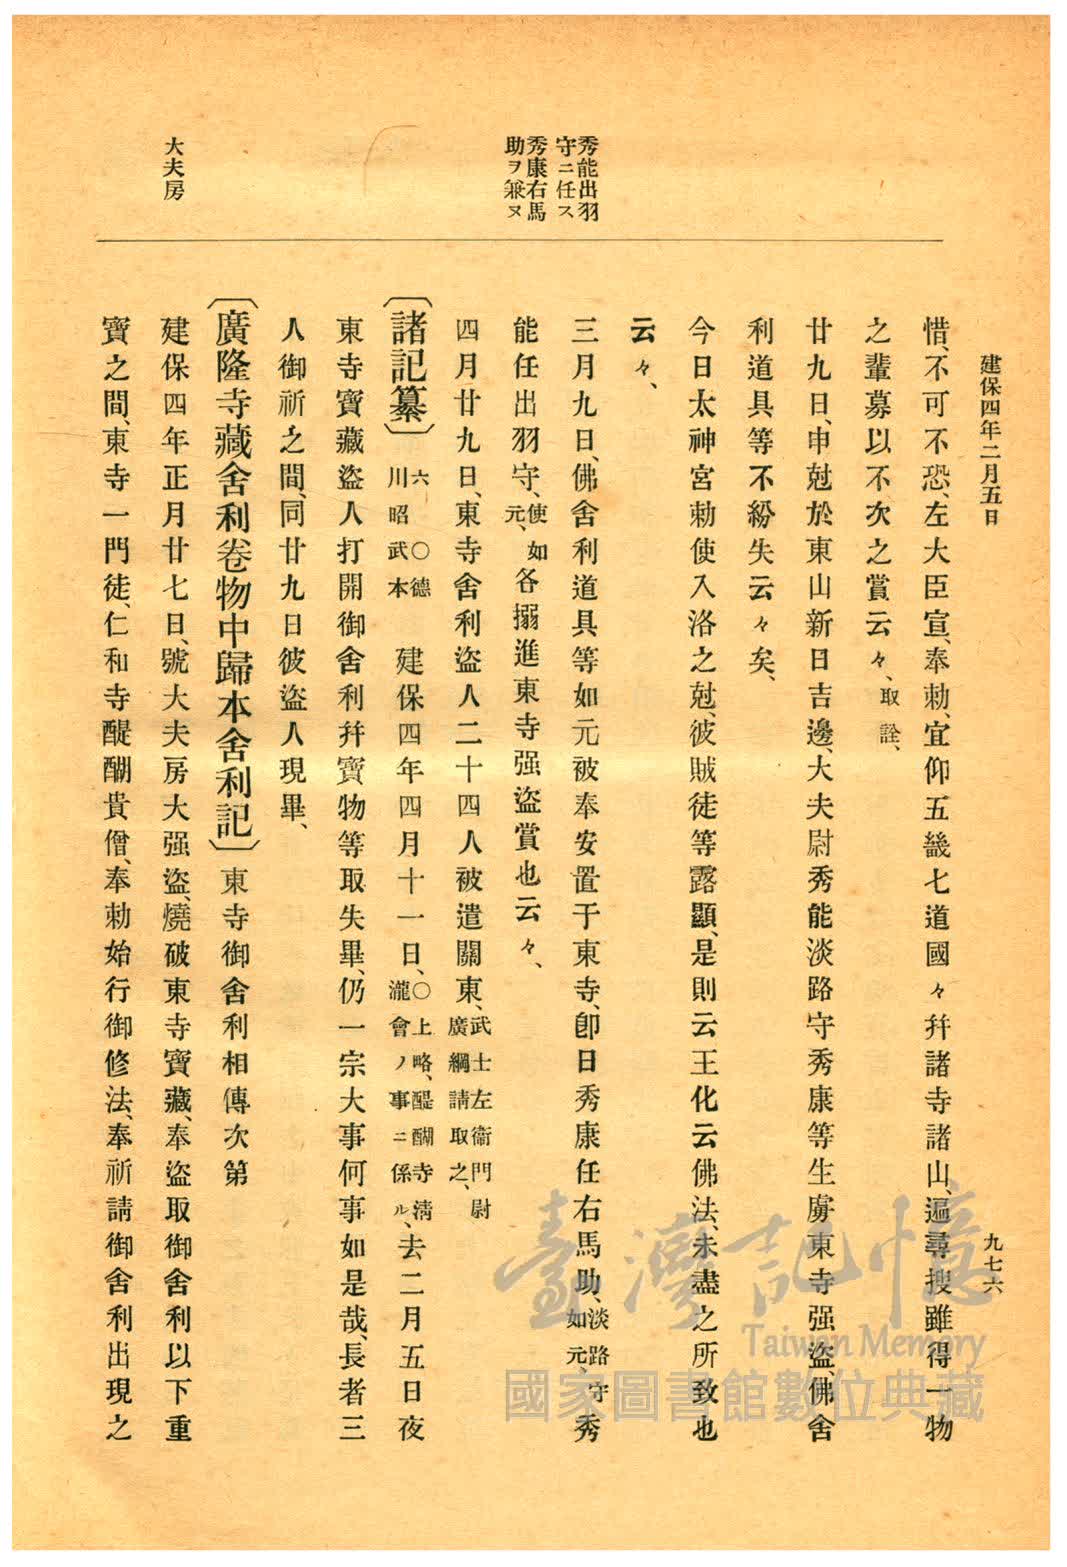 建保四年二月五日
九七六
秀能出羽
守ニ任ス
秀康右馬
助ヲ兼ヌ
大夫房
惜、不可不恐、左大臣宣、奉勅、宜仰五畿七道國々幷諸寺諸山、遍尋搜雖得一物
之輩募以不次之賞云々、取詮、
廿九日、申尅於東山新日吉邊、大夫尉秀能淡路守秀康等生虜東寺强盜、佛舍
利道具等不紛失云々矣、
今日太神宮勅使入洛之尅、彼賊徒等露顯、是則云王化云佛法、未盡之所致也
云々、
三月九日、佛舍利道具等如元被奉安置于東寺、卽日秀康任右馬助、淡路守如元、秀
能任出羽守、使如元、各搦進東寺强盜賞也云々、
四月廿九日、東寺舍利盜人二十四人被遣關東、武士左衞門尉廣綱請取之、
〔諸記纂〕 ○德川昭武本六 建保四年四月十一日、○上略、醍醐寺淸瀧會ノ事ニ係ル、去二月五日夜
東寺寶藏盜人打開御舍利幷寶物等取失畢、仍一宗大事何事如是哉、長者三
人御祈之間、同廿九日彼盜人現畢、
〔廣隆寺藏舍利卷物中歸本舍利記〕 東寺御舍利相傳次第
建保四年正月廿七日、號大夫房大强盜、燒破東寺寶藏、奉盜取御舍利以下重
寶之間、東寺一門徒、仁和寺醍醐貴僧、奉勅始行御修法、奉祈請御舍利出現之
臺灣記憶
Taiwan Memory
國家圖書館數位典藏